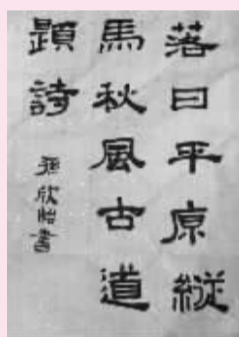 落日平原縱
馬秋風古道
題詩
孫欣怡書